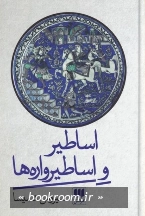 اساطیر
و اساطیرواره‌ها
« bookroom.ir »